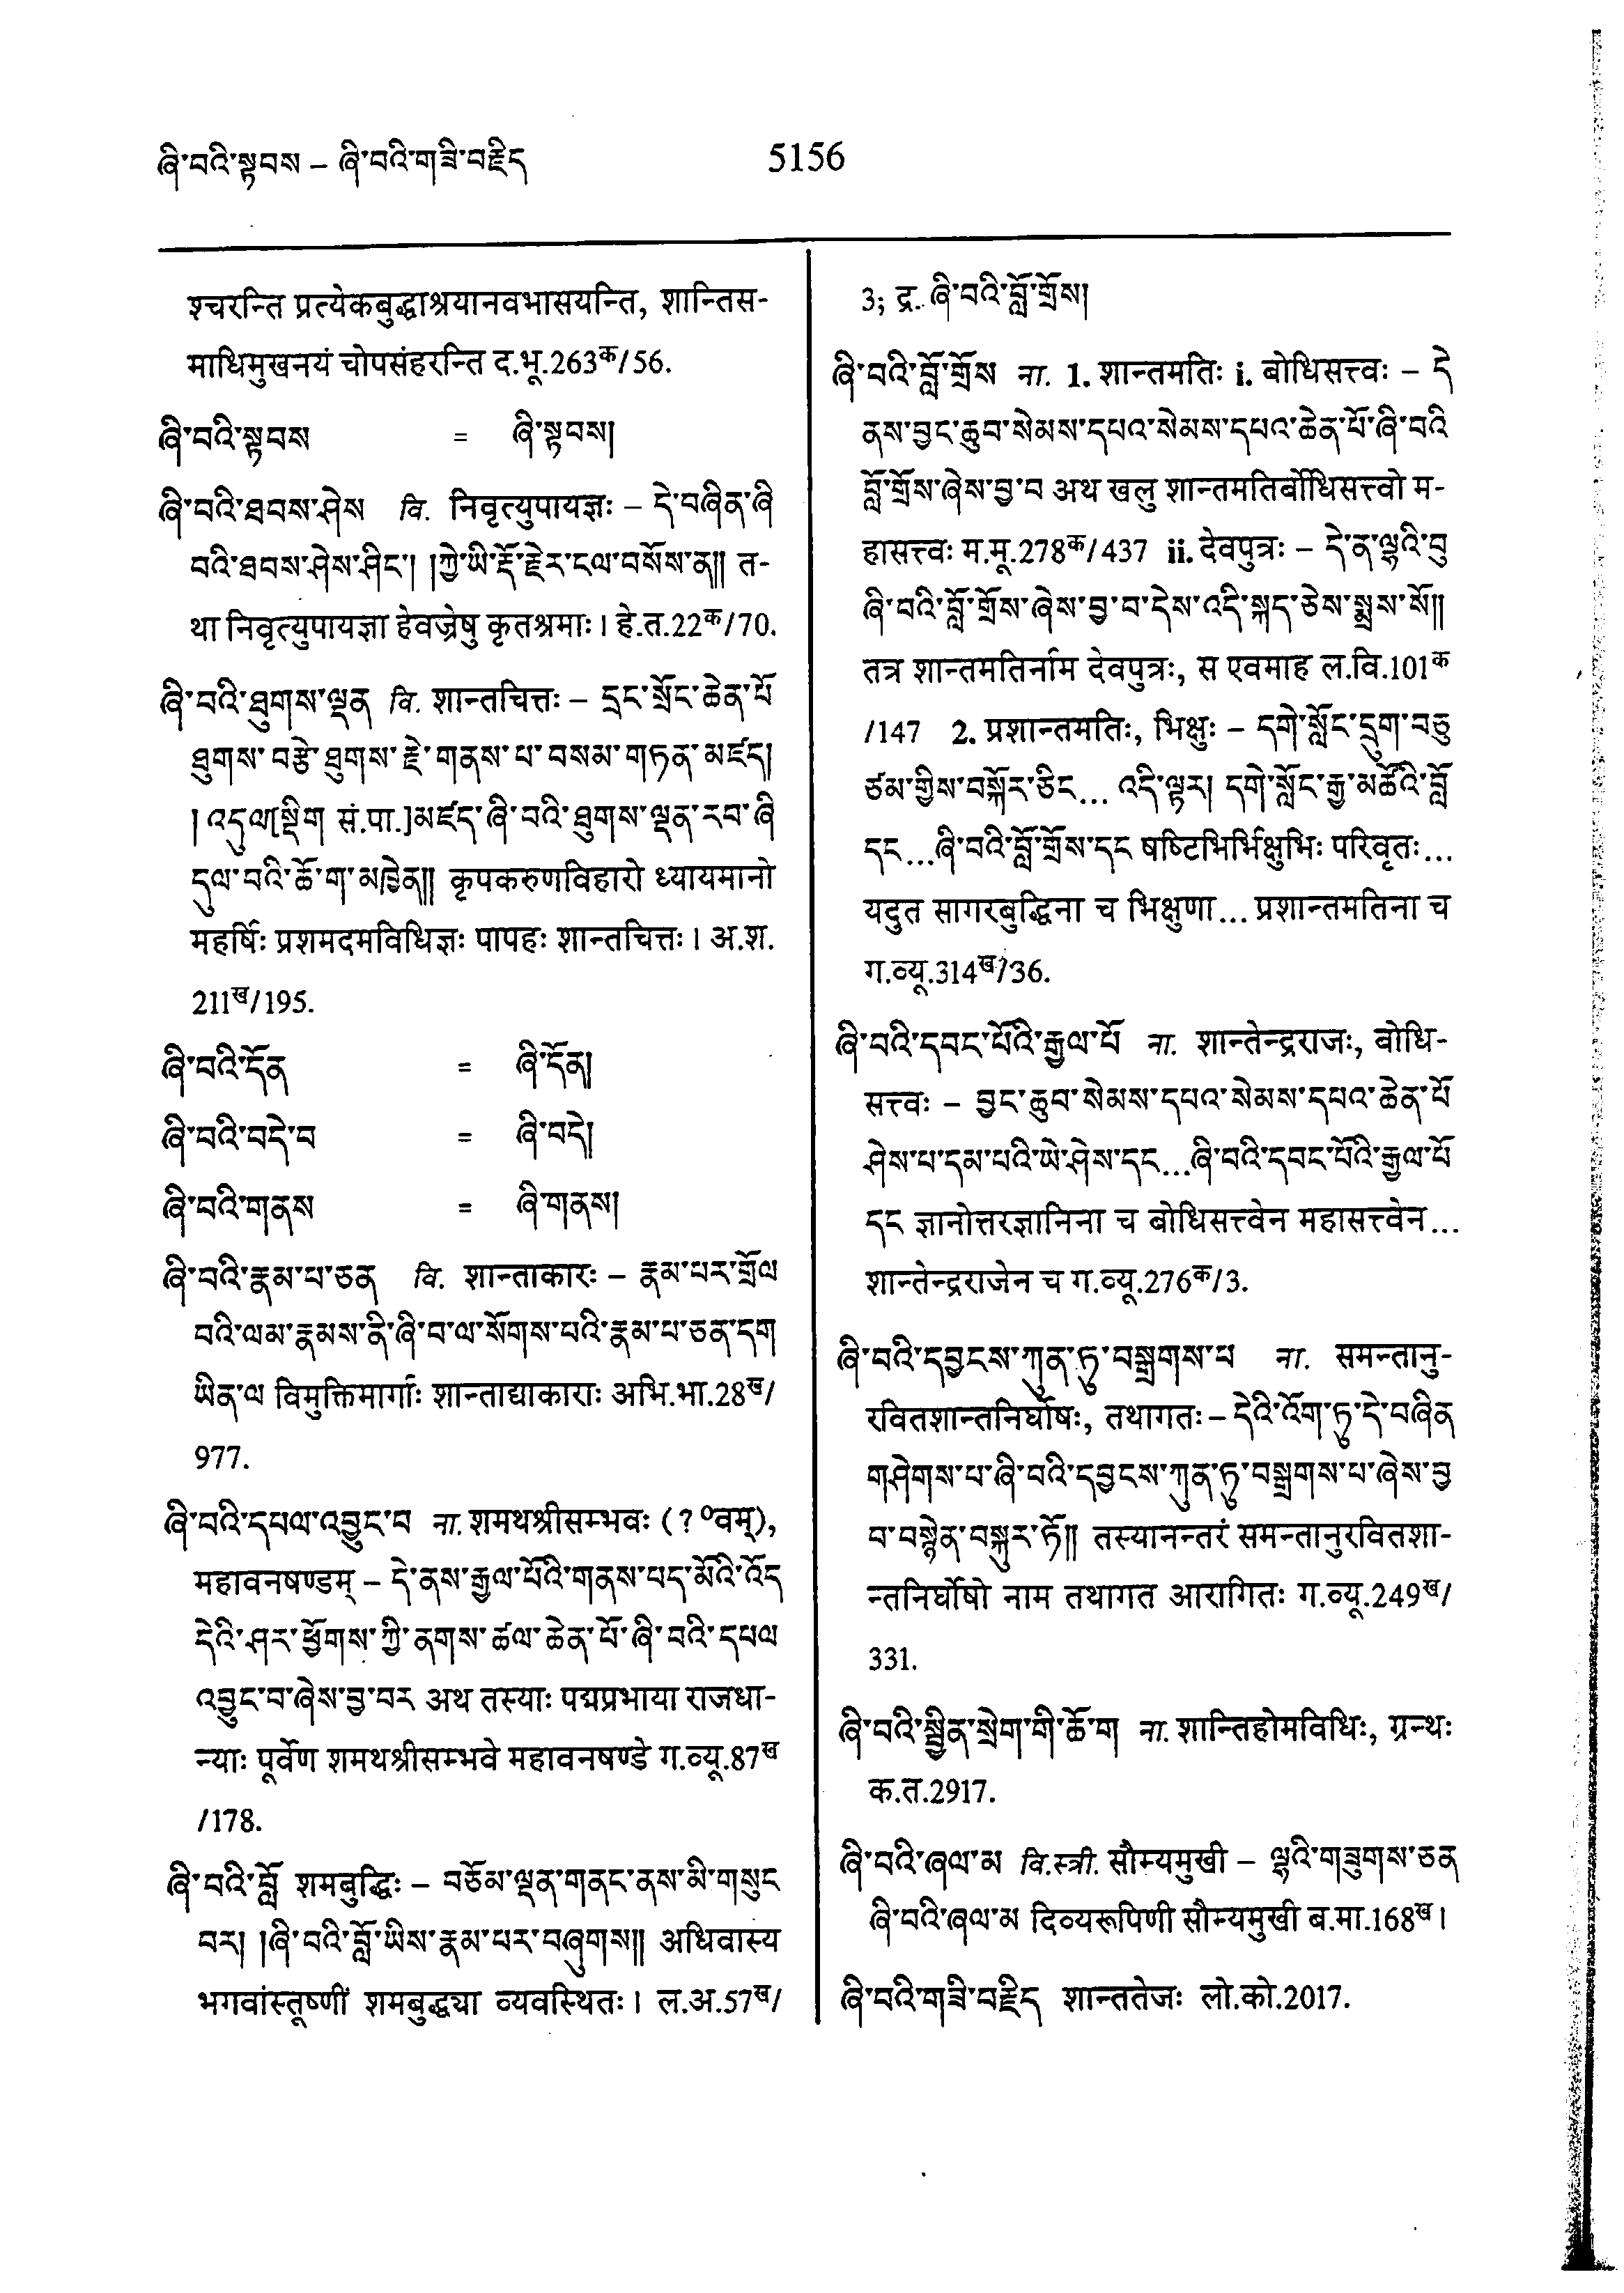 ཞི་བའི་སྟབས – ཞི་བའི་གཟི་བརྗིད
5156
श्चरन्ति प्रत्येकबुद्धाश्रयानवभासयन्ति, शान्तिस-
माधिमुखनयं चोपसंहरन्ति द.भू.263क/56.
ཞི་བའི་སྟབས = ཞི་སྟབས།
ཞི་བའི་ཐབས་ཤེས वि. निवृत्युपायज्ञः – དེ་བཞིན་ཞི
བའི་ཐབས་ཤེས་ཤིང་། །ཀྱེ་ཡི་རྡོ་རྗེར་ངལ་བསོས་ན།། त-
था निवृत्युपायज्ञा हेवज्रेषु कृतश्रमाः। हे.त.22क/70.
ཞི་བའི་ཐུགས་ལྡན वि. शान्तचित्तः – དྲང་སྲོང་ཆེན་པོ
ཐུགས་བརྩེ་ཐུགས་རྗེ་གནས་པ་བསམ་གཏན་མཛད།
།འདུལ[སྡིག सं.पा.]མཛད་ཞི་བའི་ཐུགས་ལྡན་རབ་ཞི
དུལ་བའི་ཆོ་ག་མཁྱེན།། कृपकरुणविहारो ध्यायमानो
महर्षिः प्रशमदमविधिज्ञः पापहः शान्तचित्तः। अ.श.
211ख/195.
ཞི་བའི་དོན = ཞི་དོན།
ཞི་བའི་བདེ་བ = ཞི་བདེ།
ཞི་བའི་གནས = ཞི་གནས།
ཞི་བའི་རྣམ་པ་ཅན वि. शान्ताकारः – རྣམ་པར་གྲོལ
བའི་ལམ་རྣམས་ནི་ཞི་བ་ལ་སོགས་པའི་རྣམ་པ་ཅན་དག
ཡིན་ལ विमुक्तिमार्गाः शान्ताद्याकाराः अभि.भा.28ख/
977.
ཞི་བའི་དཔལ་འབྱུང་བ ना. शमथश्रीसम्भवः (?०वम्),
महावनषण्डम् – དེ་ནས་རྒྱལ་པོའི་གནས་པད་མོའི་འོད
དེའི་ཤར་ཕྱོགས་ཀྱི་ནགས་ཚལ་ཆེན་པོ་ཞི་བའི་དཔལ
འབྱུང་བ་ཞེས་བྱ་བར अथ तस्याः पद्मप्रभाया राजधा-
न्याः पूर्वेण शमथश्रीसम्भवे महावनषण्डे ग.व्यू.87ख
/178.
ཞི་བའི་བློ शमबुद्धिः – བཅོམ་ལྡན་གནང་ནས་མི་གསུང
བར། །ཞི་བའི་བློ་ཡིས་རྣམ་པར་བཞུགས།། अधिवास्य
भगवांस्तूष्णीं शमबुद्ध्या व्यवस्थितः। ल.अ.57ख/
3; द्र. ཞི་བའི་བློ་གྲོས།
ཞི་བའི་བློ་གྲོས ना. 1. शान्तमतिः i. बोधिसत्त्वः – དེ
ནས་བྱང་ཆུབ་སེམས་དཔའ་སེམས་དཔའ་ཆེན་པོ་ཞི་བའི
བློ་གྲོས་ཞེས་བྱ་བ अथ खलु शान्तमतिर्बोधिसत्त्वो म-
हासत्त्वः म.मू.278क/437 ii. देवपुत्रः – དེ་ན་ལྷའི་བུ
ཞི་བའི་བློ་གྲོས་ཞེས་བྱ་བ་དེས་འདི་སྐད་ཅེས་སྨྲས་སོ།།
तत्र शान्तमतिर्नाम देवपुत्रः, स एवमाह ल.वि.101क
/147 2. प्रशान्तमतिः, भिक्षुः – དགེ་སློང་དྲུག་བཅུ
ཙམ་གྱིས་བསྐོར་ཅིང... འདི་ལྟར། དགེ་སློང་རྒྱ་མཚོའི་བློ
དང...ཞི་བའི་བློ་གྲོས་དང षष्टिभिर्भिक्षुभिः परिवृतः...
यदुत सागरबुद्धिना च भिक्षुणा... प्रशान्तमतिना च
ग.व्यू.314ख/36.
ཞི་བའི་དབང་པོའི་རྒྱལ་པོ ना. शान्तेन्द्रराजः, बोधि-
सत्त्वः – བྱང་ཆུབ་སེམས་དཔའ་སེམས་དཔའ་ཆེན་པོ
ཤེས་པ་དམ་པའི་ཡེ་ཤེས་དང...ཞི་བའི་དབང་པོའི་རྒྱལ་པོ
དང ज्ञानोत्तरज्ञानिना च बोधिसत्त्वेन महासत्त्वेन...
शान्तेन्द्रराजेन च ग.व्यू.276क/3.
ཞི་བའི་དབྱངས་ཀུན་ཏུ་བསྒྲགས་པ ना. समन्तानु-
रवितशान्तनिर्घोषः, तथागतः – དེའི་འོག་ཏུ་དེ་བཞིན
གཤེགས་པ་ཞི་བའི་དབྱངས་ཀུན་ཏུ་བསྒྲགས་པ་ཞེས་བྱ
བ་བསྙེན་བསྐུར་ཏོ།། तस्यानन्तरं समन्तानुरवितशा-
न्तनिर्घोषो नाम तथागत आरागितः ग.व्यू.249ख/
331.
ཞི་བའི་སྦྱིན་སྲེག་གི་ཆོ་ག ना. शान्तिहोमविधिः, ग्रन्थः
क.त.2917.
ཞི་བའི་ཞལ་མ वि.स्त्री. सौम्यमुखी – ལྷའི་གཟུགས་ཅན
ཞི་བའི་ཞལ་མ दिव्यरूपिणी सौम्यमुखी ब.मा.168ख।
ཞི་བའི་གཟི་བརྗིད शान्ततेजः लो.को.2017.